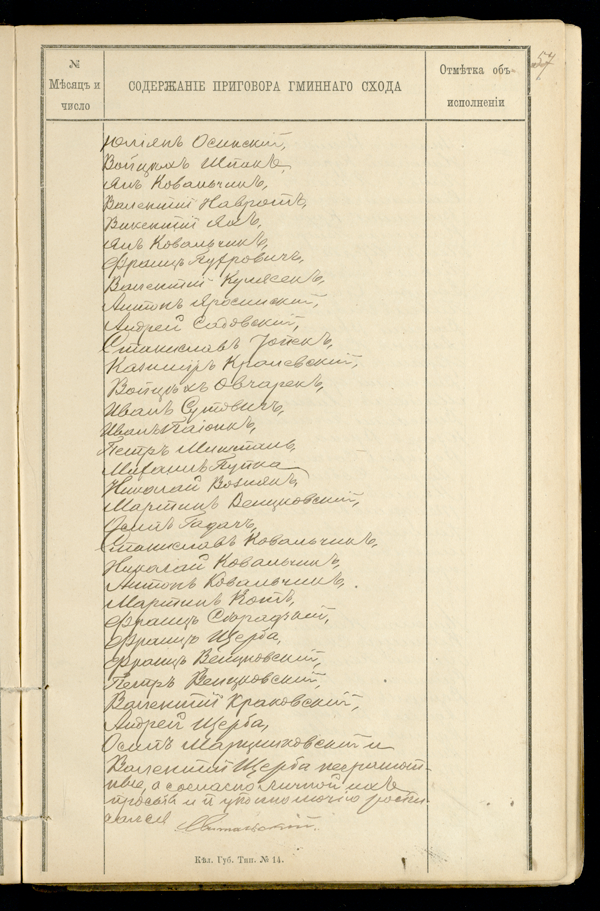 57
№
Мѣсяцъ и
число
СОДЕРЖАНІЕ ПРИГОВОРА ГМИННАГО СХОДА
Отмѣтка объ
исполненіи
Юліянъ Осинскій,
Войцехъ Шпакъ,
Янъ Ковальчикъ,
Валентій Навротъ,
Викентій
Янъ Ковальчикъ,
Францъ
Валентій
Антонъ Яросинскій,
Андрей Садовскій,
Станиславъ
Казимиръ Кралевскій,
Войцѣхъ Овчарекъ,
Иванъ
Иванъ
Петръ
Михаилъ Пупка
Николай Вознякъ,
Мартинъ Венцковскій,
Осипъ Гадачъ,
Станиславъ Ковальчикъ,
Николай Ковальчикъ,
Антонъ Ковальчикъ,
Мартинъ Котъ,
Францъ
Францъ Щерба,
Францъ Венцковскій,
Петръ Венцковскій,
Валентій Краковскій,
Андрей Щерба,
Осипъ Марцинковскій и
Валентій Щерба неграмот-
ные, а согласно личной ихъ
просьбѣ и уполномочію роспи
сался
Кѣл. Губ. Тип. № 14.